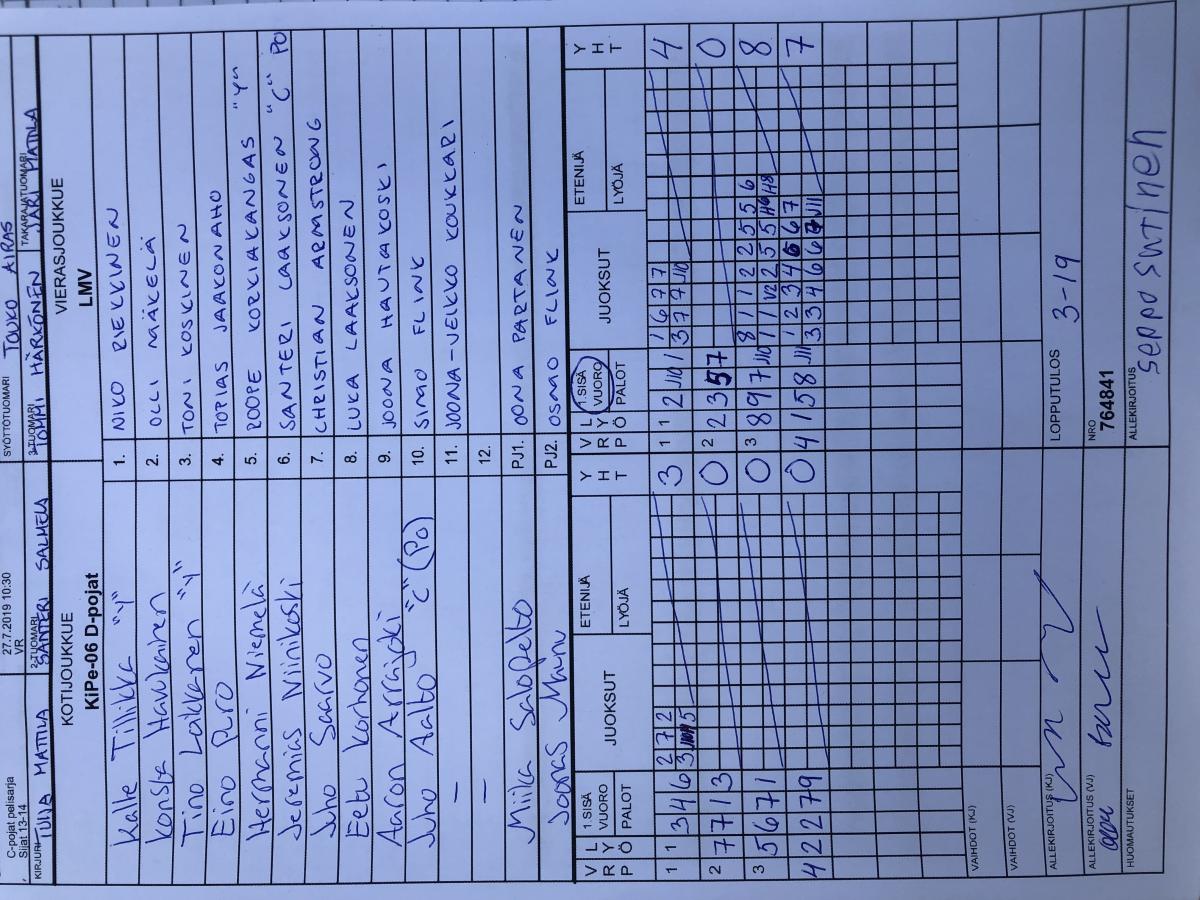 C-pojat pelisarja
Sijat 13-14
27.7.2019 10:30
VR
SYÖTTÖTUOMARI TOUKO AIRAS
KIRJURI TUIJA MATTILA
2-TUOMARI SANTERI SALMELA
3-TUOMARI TOMMI HÄRKÖNEN
TAKARAJATUOMARI JARI MATTILA
KOTIJOUKKUE
KiPe-06 D-pojat
VIERASJOUKKUE
LMV
Kalle Tillikka "Y" 1. NIKO REKKINEN
Konsta Haukainen 2. OLLI MÄKELÄ
Tino Laikkanen "Y" 3. TONI KOSKINEN
Eino Piro 4. TOPIAS JAAKONAHO
Hermanni Niemelä 5. ROOPE KORKIAKANGAS "Y"
Jeremias Niinikoski 6. SANTERI LAAKSONEN "C" PO
Juho Saarvo 7. CHRISTIAN ARMSTRONG
Eetu Korhonen 8. LUKA LAAKSONEN
Aaron Arrajoki 9. JOONA HAUTAKOSKI
Juho Aalto "C" (Po) 10. SIMO FLINK
— 11. JOONA-JEIKKO KOUKKARI
— 12.
Miika Salopelto PJ1. OONA PARTANEN
Joonas Manu PJ2. OSMO FLINK
V R P L Y Ö 1.SISÄ VUORO PALOT JUOKSUT ETENIJÄ LYÖJÄ Y H T V R P L Y Ö 1.SISÄ VUORO PALOT JUOKSUT ETENIJÄ LYÖJÄ Y H T
2 7 2 1 6 7 7
1 1 3 4 6 3 J10 H5 3 1 1 2 J10 1 3 7 7 J10 4
2 7 7 1 3 0 2 2 3 5 7 0
8 1 1 2 2 5 5 6
3 5 6 7 1 0 3 8 9 7 J10 1 1 V2 2 5 5 H6 H8 8
1 2 3 4 6 6 7
4 2 2 7 9 0 4 1 5 8 J11 3 3 4 6 6 J11 7
VAIHDOT (KJ)
VAIHDOT (VJ)
ALLEKIRJOITUS (KJ)
LOPPUTULOS 3-19
ALLEKIRJOITUS (VJ)
NRO
764841
HUOMAUTUKSET
ALLEKIRJOITUS
Seppo Sutinen